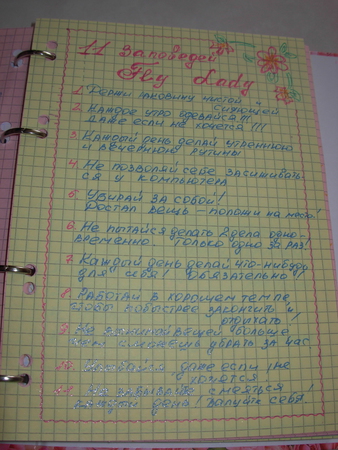 11 Заповедей
Fly Lady
1. Держи раковину чистой и сияющей
2. Каждое утро одевайся!!!
Даже если не хочется!!!
3. Каждый день делай утреннюю
и вечернюю рутины
4. Не позволяй себе засиживать-
ся у компьютера
5. Убирай за собой!
Достал вещь – положи на место!
6. Не пытайся делать 2 дела одно-
временно. Только одно за раз!
7. Каждый день делай что-нибудь
для себя! Обязательно!
8. Работай в хорошем темпе
чтобы побыстрее закончить и
отдыхать!
9. Не вещей больше
чем убрать за час
10. даже если не
хочется
11. Не забывай смеяться!
день! себя